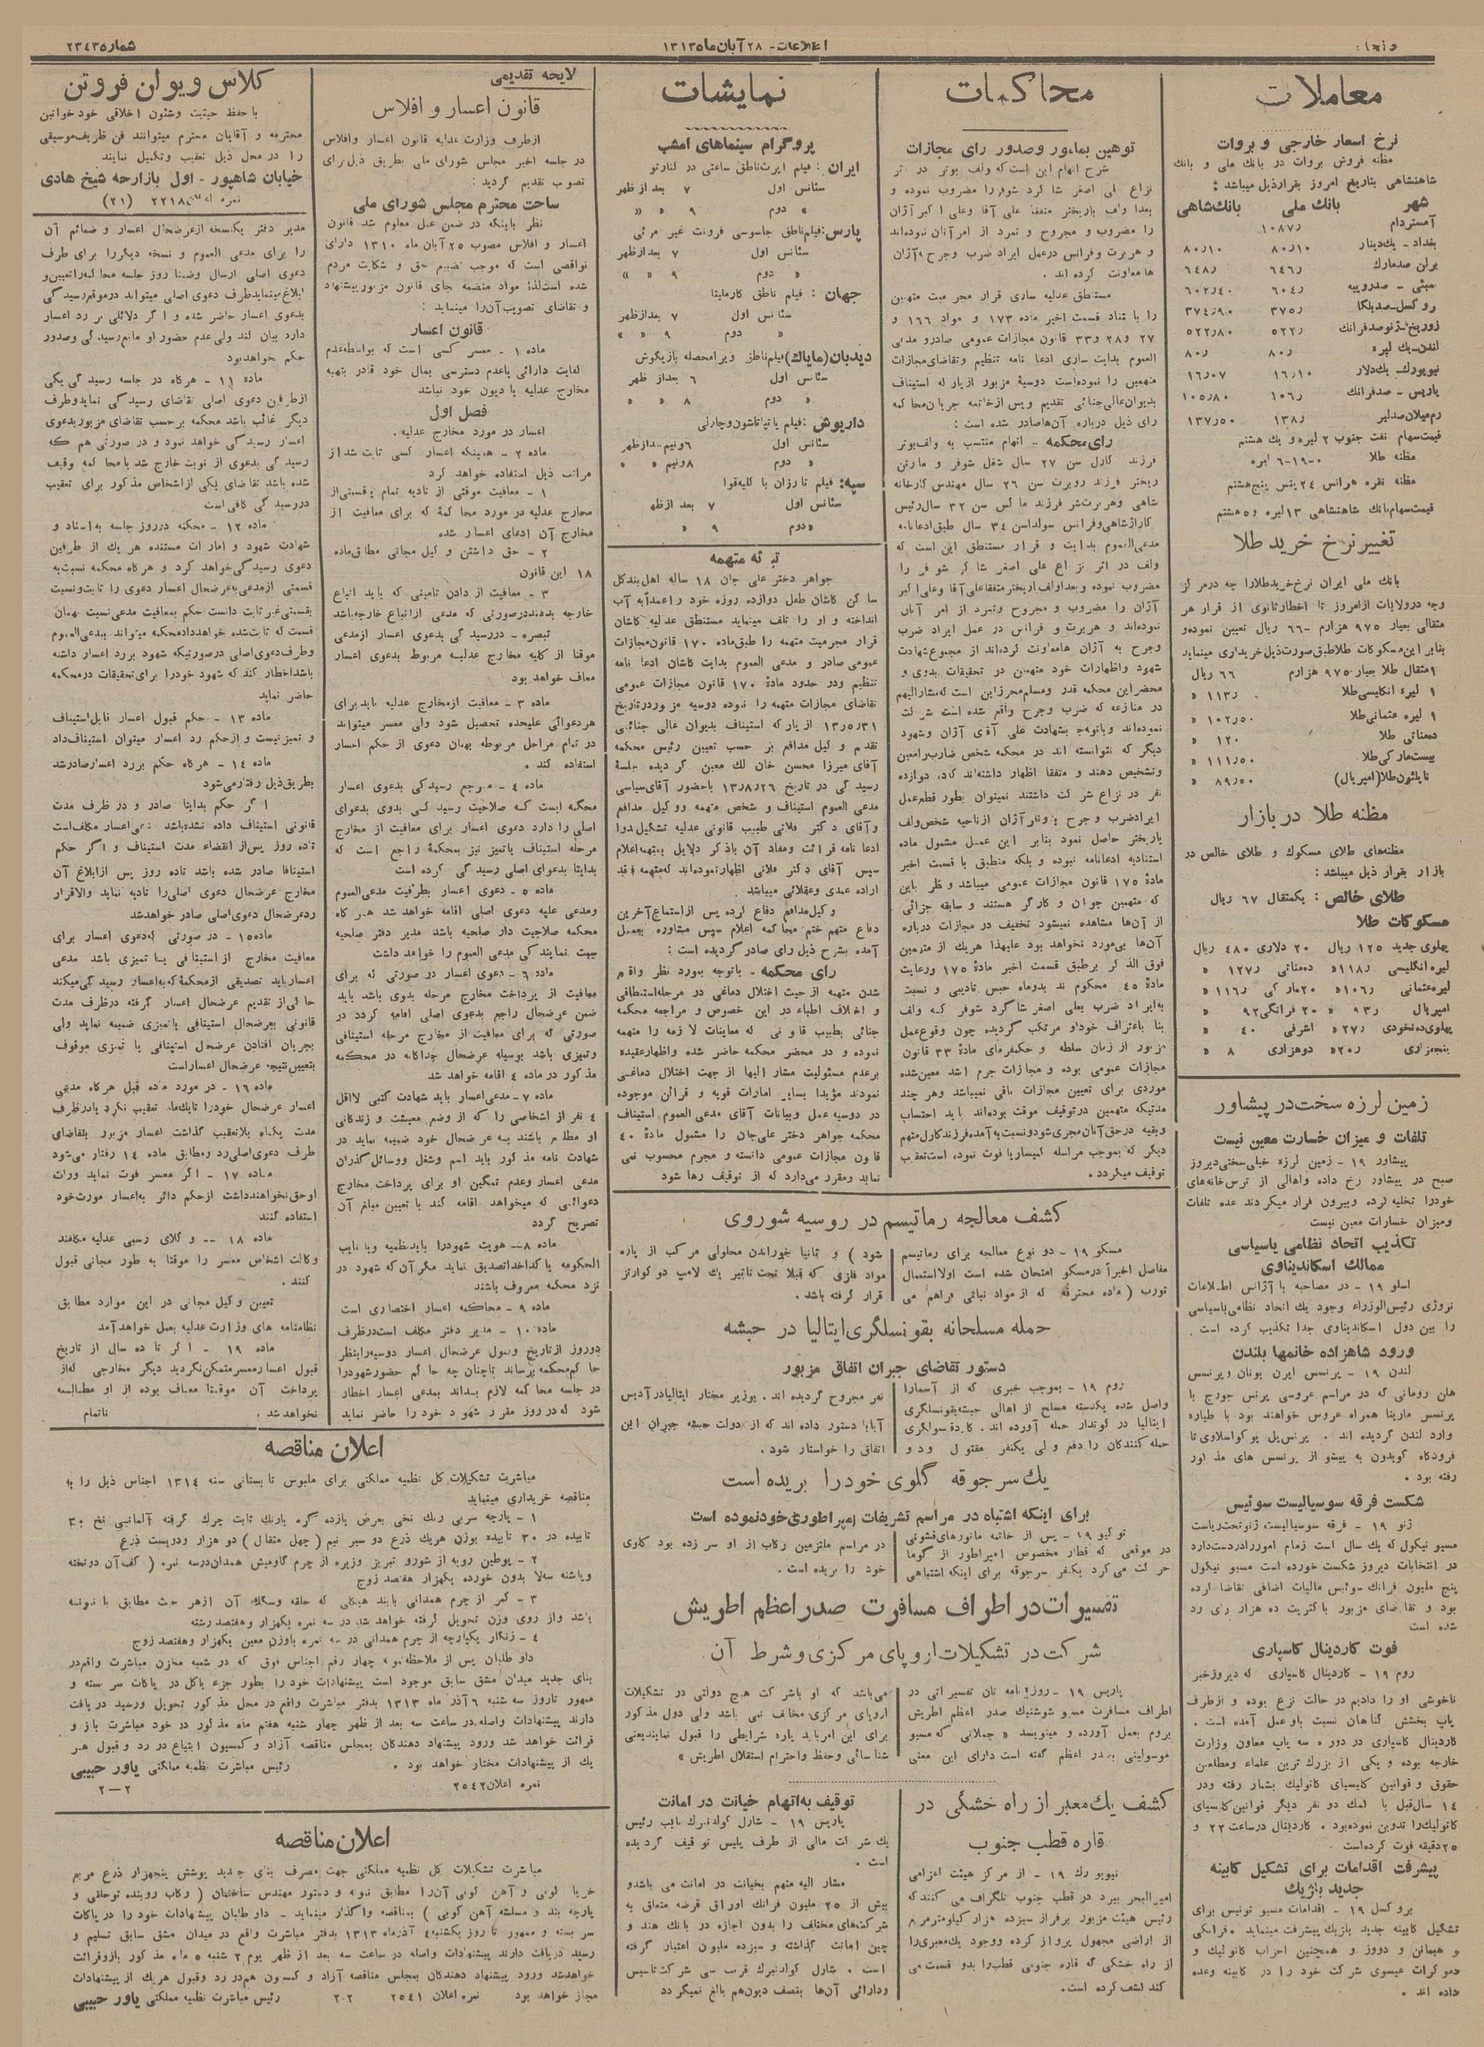 شماره ۲۳۴۳
اطلاعات - ۲۸ آبان ماه ۱۳۱۳
معاملات
نرخ اسعار خارجی و بروات
مظنه فروش بروات در بانک ملی و بانک
شاهنشاهی بتاریخ امروز بقرار ذیل میباشد :
شهر بانک ملی بانک شاهی
آمستردام ۱۰۸۷ر
بغداد - یک دینار ۸۰ر۱۰ ۸۰ر۱۰
برلن صد مارک ۶۴۶ر ۶۴۸ر
بمبئی - صد روپیه ۶۰۴ر ۶۰۲ر۴۰
بروکسل - صد بلگا ۳۷۵ر ۳۷۴ر۹۰
زوریخ - ژنو صد فرانک ۵۲۲ر ۵۲۲ر۸۰
لندن - یک لیره ۸۰ر ۸۰ر
نیویورک - یک دلار ۱۶ر۱۰ ۱۶ر۰۷
پاریس - صد فرانک ۱۰۶ر ۱۰۵ر۸۰
رم میلان صد لیر ۱۳۸ر ۱۳۷ر۵۰
قیمت سهام نفت جنوب ۲ لیره و یک هشتم
مظنه طلا ۰-۱۹-۶ لیره
مظنه نقره هر انس ۲۴ پنس پنج هشتم
قیمت سهام بانک شاهنشاهی ۱۳ لیره و ۵ هشتم
تغییر نرخ خرید طلا
بانک ملی ایران نرخ خرید طلا را چه در مرکز
وچه در ولایات از امروز تا اخطار ثانوی از قرار هر
مثقالی بعیار ۹۷۵ هزارم - ۶۶ ریال تعیین نموده و
بنابر این مسکوکات طلا طبق صورت ذیل خریداری مینماید
۱ مثقال طلا بعیار ۹۷۵ هزارم ۶۶ ریال
۱ لیره انگلیسی طلا ۱۱۳ر «
۱ لیره عثمانی طلا ۱۰۲ر۵۰ «
ده مناتی طلا ۱۲۰ «
بیست مارکی طلا ۱۱۱ر۵۰ «
ناپلئون طلا (امپریال) ۸۹ر۵۰ «
مظنه طلا در بازار
مظنه های طلای مسکوک و طلای خالص در
بازار بقرار ذیل میباشد :
طلای خالص : یکمثقال ۶۷ ریال
مسکوکات طلا
پهلوی جدید ۱۲۵ ریال ۲۰ دلاری ۴۸۰ ریال
لیره انگلیسی ۱۱۸ر « ده مناتی ۱۲۷ر «
لیره عثمانی ۱۰۶ر « ۲۰ مارکی ۱۱۶ر «
امپریال ۹۳ر « ۲۰ فرانکی ۹۲ «
پهلوی ده نخودی ۲۷ر « اشرفی ۴۰ «
پنجهزاری ۲۰ر « دوهزاری ۸ «
زمین لرزه سخت در پیشاور
تلفات و میزان خسارت معین نیست
پیشاور ۱۹ - زمین لرزه خیلی سختی دیروز
صبح در پیشاور رخ داده و اهالی از ترس خانه های
خود را تخلیه کرده و بیرون فرار میکردند عده تلفات
و میزان خسارات معین نیست
تکذیب اتحاد نظامی یا سیاسی
ممالک اسکاندیناوی
اسلو ۱۹ - در مصاحبه با آژانس اطلاعات
نروژی رئیس الوزراء وجود یک اتحاد نظامی یا سیاسی
را بین دول اسکاندیناوی جدا تکذیب کرده است .
ورود شاهزاده خانمها بلندن
لندن ۱۹ - پرنسس ایرن یونان و پرنسس
هلن رومانی که در مراسم عروسی پرنس جورج با
پرنسس مارینا همراه عروس خواهند بود با طیاره
وارد لندن گردیده اند . پرنس پل یوگوسلاوی تا
فرودگاه کرویدون به پیشواز پرنسس های مذکور
رفته بود .
شکست فرقه سوسیالیست سوئیس
ژنو ۱۹ - فرقه سوسیالیست ژنو تحت ریاست
مسیو نیکول که یک سال است زمام امور را در دست دارد
در انتخابات دیروز شکست خورده است مسیو نیکول
پنج ملیون فرانک سوئیس مالیات اضافی تقاضا کرده
بود و تقاضای مزبور با کثریت ده هزار رای رد
شده است
فوت کاردینال کاسپاری
روم ۱۹ - کاردینال کاسپاری که دیروز خبر
ناخوشی او را دادیم در حالت نزع بوده و از طرف
پاپ بخشش گناهان نسبت باو عمل آمده است .
کاردینال کاسپاری در دوره سه پاپ معاون وزارت
خارجه بوده و یکی از بزرگ ترین علماء و مطلعین
حقوق و قوانین کلیسیای کاتولیک بشمار رفته و در
۱۴ سال قبل با کمک دو نفر دیگر قوانین کلیسیای
کاتولیک را تدوین نموده بود . کاردینال در ساعت ۲۲ و
۲۵ دقیقه فوت کرده است .
پیشرفت اقدامات برای تشکیل کابینه
جدید بلژیک
بروکسل ۱۹ - اقدامات مسیو تونیس برای
تشکیل کابینه جدید بلژیک پیشرفت مینماید . فرانکی
و هیمانس و دووز و همچنین احزاب کاتولیک و
دموکرات عیسوی شرکت خود را در کابینه وعده
داده اند .
محاکمات
توهین بمامور و صدور رای مجازات
شرح اتهام این است که ولف بوتر در اثر
نزاع علی اصغر شاگرد شوفر را مضروب نموده و
بعدا ولف باریختر متفقا علی آقا و علی اکبر آژان
را مضروب و مجروح و تمرد از امر آنان نموده اند
و هربرت و فرانس در عمل ایراد ضرب و جرح با آژان
ها معاونت کرده اند .
مستنطق عدلیه ساری قرار مجرمیت متهمین
را با ستناد قسمت اخیر ماده ۱۷۳ و مواد ۱۶۶ و
۲۷ و ۲۸ و ۳۳ قانون مجازات عمومی صادر و مدعی
العموم بدایت ساری ادعا نامه تنظیم و تقاضای مجازات
متهمین را نموده است دوسیه مزبور از پارکه استیناف
بدیوان عالی جنائی تقدیم و پس از خاتمه جریان محاکمه
رای ذیل درباره آن ها صادر شده است :
رای محکمه - اتهام منتسب به ولف بوتر
فرزند کارل سن ۲۷ سال شغل شوفر و مارتن
ریختر فرزند روبرت سن ۲۶ سال مهندس کارخانه
شاهی و هربرت شر فرزند ماکس سن ۳۲ سال رئیس
کاراژ شاهی و فرانس سولداسن ۳۴ سال طبق ادعانامه
مدعی العموم بدایت و قرار مستنطق این است که
ولف در اثر نزاع علی اصغر شاگرد شوفر را
مضروب نموده و بعد اولف باریختر متفقا علی آقا و علی اکبر
آژان را مضروب و مجروح و تمرد از امر آنان
نموده اند و هربرت و فرانس در عمل ایراد ضرب
وجرح به آژان ها معاونت کرده اند از مجموع شهادت
شهود و اظهارات خود متهمین در تحقیقات بدوی و
محضر این محکمه قدر و مسلم محرز این است که مشارالیهم
در منازعه که ضرب و جرح واقع شده است شرکت
نموده اند و با توجه بشهادت علی آقای آژان و شهود
دیگر که نتوانسته اند در محکمه شخص ضارب را معین
و تشخیص دهند و متفقا اظهار داشته اند که دوازده
نفر در نزاع شرکت داشتند نمیتوان بطور قطع عمل
ایراد ضرب و جرح بدو نفر آژان از ناحیه شخص ولف
یا ریختر حاصل نمود بنابر این عمل مشمول ماده
استنادیه ادعانامه نبوده و بلکه منطبق با قسمت اخیر
مادهٔ ۱۷۵ قانون مجازات عمومی میباشد و نظر باین
که متهمین جوان و کارگر هستند و سابقه جزائی
از آن ها مشاهده نمیشود تخفیف در مجازات درباره
آن ها بی مورد نخواهد بود علیهذا هریک از متهمین
فوق الذکر بر طبق قسمت اخیر مادهٔ ۱۷۵ و رعایت
مادهٔ ۴۵ محکوم اند بدو ماه حبس تادیبی و نسبت
به ایراد ضرب بعلی اصغر شاگرد شوفر که ولف
بنا باعتراف خود او مرتکب گردیده چون وقوع عمل
مزبور از زمان سلطه و حکمفرمای مادهٔ ۳۳ قانون
مجازات عمومی بوده و مجازات جرم اشد معین شده
موردی برای تعیین مجازات باقی نمیباشد و هر چند
مدتیکه متهمین در توقیف موقت بوده اند باید احتساب
وبقیه در حق آنان مجری شود و نسبت به آدمه فرزند کارل متهم
دیگر که بموجب مراسله کمیساریا فوت نموده است تعقیب
توقیف میگردد .
نمایشات
پروگرام سینماهای امشب
ایران : فیلم ایرت ناطق ساعتی در کنارتو
سئانس اول ۷ بعد از ظهر
« دوم ۹ « «
پارس : فیلم ناطق جاسوسی فرونت غیر مرئی
سئانس اول ۷ بعد از ظهر
« دوم ۹ « «
جهان : فیلم ناطق کارملیتا
سئانس اول ۷ بعد از ظهر
« دوم ۹ « «
دیدبان (مایاک) فیلم ناطق ویرا محصله بازیگوش
سئانس اول ۶ بعد از ظهر
« دوم ۸ « «
داریوش : فیلم پاتپاتاشون و چارلی
سئانس اول ۶ و نیم بعد از ظهر
« دوم ۸ و نیم « «
سپه : فیلم تارزان با کلیه قوا
سئانس اول ۷ بعد از ظهر
« دوم ۹ «
تبرئه متهمه
جواهر دختر علی جان ۱۸ ساله اهل بندکل
ساکن کاشان طفل دوازده روزه خود را عمداً به آب
انداخته و او را تلف مینماید مستنطق عدلیه کاشان
قرار مجرمیت متهمه را طبق ماده ۱۷۰ قانون مجازات
عمومی صادر و مدعی العموم بدایت کاشان ادعا نامه
تنظیم و در حدود مادهٔ ۱۷۰ قانون مجازات عمومی
تقاضای مجازات متهمه را نموده دوسیه مزبور در تاریخ
۱۳ر۵ر۳۱ از پارکه استیناف بدیوان عالی جنائی
تقدیم و کیل مدافع بر حسب تعیین رئیس محکمه
آقای میرزا محسن خان لک معین گردیده جلسهٔ
رسیدگی در تاریخ ۱۳ر۸ر۲۶ با حضور آقای سیاسی
مدعی العموم استیناف و شخص متهمه و وکیل مدافع
و آقای دکتر فلاتی طبیب قانونی عدلیه تشکیل و بدوا
ادعا نامه قرائت و مفاد آن با ذکر دلایل بمتهمه اعلام
سپس آقای دکتر فلاتی اظهار نموده اند که متهمه فاقد
اراده عمدی و عقلانی میباشد
و کیل مدافع دفاع کرده پس از استماع آخرین
دفاع متهم ختم محاکمه اعلام سپس مشاوره بعمل
آمده بشرح ذیل رای صادر گردیده است :
رای محکمه - با توجه بمورد نظر واقع
شدن متهمه از حیث اختلال دماغی در مرحله استنطاقی
و اختلاف اطباء در این خصوص و مراجعه محکمه
جنائی بطبیب قانونی که معاینات لازمه را متهمه
نموده و در محضر محکمه حاضر شده و اظهار عقیده
بر عدم مسئولیت مشار الیها از جهت اختلال دماغی
نمودند مؤیدا بسایر امارات قویه و قرائن موجوده
در دوسیه عمل و بیانات آقای مدعی العموم استیناف
محکمه جواهر دختر علی جان را مشمول مادهٔ ۴۰
قانون مجازات عمومی دانسته و مجرم محسوب نمی
نماید و مقرر میدارد که از توقیف رها شود
کشف معالجه رماتیسم در روسیه شوروی
مسکو ۱۹ - دو نوع معالجه برای رماتیسم
مفاصل اخیرا در مسکو امتحان شده است اولا استعمال
تورب ( ماده محترقه که از مواد نباتی فراهم می
شود ) و ثانیا خوراندن محلولی مرکب از پاره
مواد فلزی که قبلا تحت تاثیر یک لامپ دو کوارتز
قرار گرفته باشد .
حمله مسلحانه بقونسلگری ایتالیا در حبشه
دستور تقاضای جبران اتفاق مزبور
روم ۱۹ - بموجب خبری که از آسمارا
واصل شده یکدسته مسلح از اهالی حبشه بقونسلگری
ایتالیا در گوندار حمله آورده اند . گارد قونسولگری
حمله کنندگان را دفع ولی یکنفر مقتول و دو
نفر مجروح گردیده اند . بوزیر مختار ایتالیا در آدیس
آبابا دستور داده اند که از دولت حبشه جبران این
اتفاق را خواستار شود .
یک سر جوقه گلوی خود را بریده است
برای اینکه اشتباه در مراسم تشریفات امپراطوری خود نموده است
توکیو ۱۹ - پس از خاتمه مانورهای قشونی
در موقعی که قطار مخصوص امپراطور از گوما
حرکت می کرد یکنفر سرجوقه برای اینکه اشتباهی
در مراسم ملتزمین رکاب از او سر زده بود گلوی
خود را بریده است .
تفسیرات در اطراف مسافرت صدر اعظم اطریش
شرکت در تشکیلات اروپای مرکزی و شرط آن
پاریس ۱۹ - روزنامه تان تفسیراتی در
اطراف مسافرت مسیو شوشنیک صدر اعظم اطریش
بروم بعمل آورده و مینویسد « جملاتی که مسیو
موسولینی بصدر اعظم گفته است دارای این معنی
می باشد که او با شرکت هیچ دولتی در تشکیلات
اروپای مرکزی مخالف نمی باشد ولی دول مذکور
برای این امر باید پاره شرایطی را قبول نمایند یعنی
شناسائی و حفظ و احترام استقلال اطریش »
کشف یک معبر از راه خشکی در
قاره قطب جنوب
نیویورک ۱۹ - از مرکز هیئت اعزامی
امیرالبحر بیرد در قطب جنوب تلگراف می کنند که
رئیس هیئت مزبور بر فراز سیزده هزار کیلومتر مربع
از اراضی مجهول پرواز کرده و وجود یک معبری را
از راه خشکی که قاره جنوبی قطب را بدو قسمت می
کند کشف کرده است .
توقیف به اتهام خیانت در امانت
پاریس ۱۹ - شارل کولدنبرک نایب رئیس
یک شرکت مالی از طرف پلیس توقیف گردیده
است .
مشار الیه متهم بخیانت در امانت می باشد و
بیش از ۲۵ ملیون فرانک اوراق قرضه متعلق به
شرکت های مختلف را بدون اجازه در بانک هند و
چین امانت گذاشته و سیزده ملیون اعتبار گرفته
است . شارل کولدنبرک قریب سی شرکت تاسیس
و دارائی آن ها بنصف دیون هم بالغ نمیگردد
لایحه تقدیمی
قانون اعسار و افلاس
از طرف وزارت عدلیه قانون اعسار و افلاس
در جلسه اخیر مجلس شورای ملی بطریق ذیل برای
تصویب تقدیم گردید :
ساحت محترم مجلس شورای ملی
نظر باینکه در ضمن عمل معلوم شد قانون
اعسار و افلاس مصوب ۲۵ آبان ماه ۱۳۱۰ دارای
نواقصی است که موجب تضییع حق و شکایت مردم
شده است لذا مواد منضمه بجای قانون مزبور پیشنهاد
و تقاضای تصویب آن را مینماید :
قانون اعسار
ماده ۱ - معسر کسی است که بواسطه عدم
کفایت دارائی یا عدم دسترسی بمال خود قادر بتهیه
مخارج عدلیه یا دیون خود نباشد
فصل اول
اعسار در مورد مخارج عدلیه .
ماده ۲ - همینکه اعسار کسی ثابت شد از
مراتب ذیل استفاده خواهد کرد
۱ - معافیت موقتی از تادیه تمام یا قسمتی از
مخارج عدلیه در مورد محاکمهٔ که برای معافیت از
مخارج آن ادعای اعسار شده
۲ - حق داشتن وکیل مجانی مطابق ماده
۱۸ این قانون
۳ - معافیت از دادن تامینی که باید اتباع
خارجه بدهند در صورتی که مدعی از اتباع خارجه باشد
تبصره - در رسیدگی بدعوی اعسار از مدعی
موقتا از کلیه مخارج عدلیه مربوط بدعوی اعسار
معاف خواهد بود
ماده ۳ - معافیت از مخارج عدلیه باید برای
هر دعوائی علیحده تحصیل شود ولی معسر میتواند
در تمام مراحل مربوطه بهمان دعوی از حکم اعسار
استفاده کند .
ماده ۴ - مرجع رسیدگی بدعوی اعسار
محکمه ایست که صلاحیت رسیدگی بدوی بدعوای
اصلی را دارد دعوی اعسار برای معافیت از مخارج
مرحله استیناف یا تمیز نیز بمحکمهٔ راجع است که
بدایتا بدعوای اصلی رسیدگی کرده است
ماده ۵ - دعوی اعسار بطرفیت مدعی العموم
و مدعی علیه دعوی اصلی اقامه خواهد شد هر گاه
محکمه صلاحیت دار صلحیه باشد مدیر دفتر صلحیه
سمت نمایندگی مدعی العموم را خواهد داشت
ماده ۶ - دعوی اعسار در صورتی که برای
معافیت از پرداخت مخارج مرحله بدوی باشد باید
ضمن عرضحال راجع بدعوی اصلی اقامه گردد در
صورتی که برای معافیت از مخارج مرحله استینافی
و تمیزی باشد بوسیله عرضحال جداگانه در محکمه
مذکور در ماده ۴ اقامه خواهد شد
ماده ۷ - مدعی اعسار باید شهادت کتبی لااقل
۴ نفر از اشخاصی را که از وضع معیشت و زندگانی
او مطلع باشند به عرضحال خود ضمیمه نماید در
شهادت نامه مذکور باید اسم و شغل و وسائل گذران
مدعی اعسار و عدم تمکین او برای پرداخت مخارج
دعوائی که میخواهد اقامه کند با تعیین مبلغ آن
تصریح گردد
ماده ۸ - هویت شهود را باید نظمیه و یا نایب
الحکومه یا کدخدا تصدیق نماید مگر آن که شهود در
نزد محکمه معروف باشند
ماده ۹ - محاکمه اعسار اختصاری است
ماده ۱۰ - مدیر دفتر مکلف است در ظرف
دو روز از تاریخ وصول عرضحال اعسار دوسیه را بنظر
حاکم محکمه برساند تا چنان چه حاکم حضور شهود را
در جلسه محاکمه لازم بداند بمدعی اعسار اخطار
شود که در روز مقرر شهود خود را حاضر نماید
کلاس ویولن فروتن
با حفظ حیثیت و شئون اخلاقی خود خوانین
محترمه و آقایان محترم میتوانند فن ظریف موسیقی
را در محل ذیل تعقیب و تکمیل نمایند
خیابان شاهپور - اول بازارچه شیخ هادی
نمره اعلان ۲۲۱۸ (۲۱)
مدیر دفتر یک نسخه از عرضحال اعسار و ضمائم آن
را برای مدعی العموم و نسخه دیگر را برای طرف
دعوی اصلی ارسال و ضمنا روز جلسه محاکمه را تعیین و
ابلاغ مینماید طرف دعوی اصلی میتواند در موقع رسیدگی
بدعوی اعسار حاضر شده و اگر دلائلی بر رد اعسار
دارد بیان کند ولی عدم حضور او مانع رسیدگی و صدور
حکم نخواهد بود
ماده ۱۱ - هر گاه در جلسه رسیدگی یکی
از طرفین دعوی اصلی تقاضای رسیدگی نماید و طرف
دیگر غائب باشد محکمه بر حسب تقاضای مزبور بدعوی
اعسار رسیدگی خواهد نمود و در صورتی هم که
رسیدگی بدعوی از نوبت خارج شد یا محاکمه وقیف
شده باشد تقاضای یکی از اشخاص مذکور برای تعقیب
در رسیدگی کافی است
ماده ۱۲ - محکمه در روز جلسه به اسناد و
شهادت شهود و امارات مستنده هر یک از طرفین
دعوی رسیدگی خواهد کرد و هر گاه محکمه نسبت به
قسمتی از مدعی به عرضحال اعسار دعوی را ثابت و نسبت
بقسمتی غیر ثابت دانست حکم بمعافیت مدعی نسبت بهمان
قسمت که ثابت شده خواهد داد محکمه میتواند بمدعی العموم
و طرف دعوی اصلی در صورتیکه شهود بر رد اعسار داشته
باشد اخطار کند که شهود خود را برای تحقیقات در محکمه
حاضر نماید
ماده ۱۳ - حکم قبول اعسار قابل استیناف
و تمیز نیست و از حکم رد اعسار میتوان استیناف داد
ماده ۱۴ - هر گاه حکم برد اعسار صادر شد
بطریق ذیل رفتار میشود
اگر حکم بدایتا صادر و در ظرف مدت
قانونی استیناف داده نشده باشد مدعی اعسار مکلف است
تا ده روز پس از انقضاء مدت استیناف و اگر حکم
استینافا صادر شده باشد تا ده روز پس از ابلاغ آن
مخارج عرضحال دعوی اصلی را تادیه نماید و الا قرار
رد عرضحال دعوی اصلی صادر خواهد شد
ماده ۱۵ - در صورتی که دعوی اعسار برای
معافیت مخارج از استینافی یا تمیزی باشد مدعی
اعسار باید تصدیقی از محکمهٔ که به اعسار رسیدگی میکند
حاکی از تقدیم عرضحال اعسار گرفته در ظرف مدت
قانونی بعرضحال استینافی یا تمیزی ضمیمه نماید ولی
بجریان افتادن عرضحال استینافی یا تمیزی موقوف
بتعیین نتیجه عرضحال اعسار است
ماده ۱۶ - در مورد ماده قبل هر گاه مدعی
اعسار عرضحال خود را تا یک ماه تعقیب نکرد یا در ظرف
مدت یک ماه بلا تعقیب گذاشت اعسار مزبور بتقاضای
طرف دعوی اصلی رد و مطابق ماده ۱۴ رفتار می شود
ماده ۱۷ - اگر معسر فوت نماید وراث
او حق نخواهند داشت از حکم دائر به اعسار مورث خود
استفاده کنند
ماده ۱۸ - وکلای رسمی عدلیه مکلفند
وکالت اشخاص معسر را موقتا به طور مجانی قبول
کنند .
تعیین وکیل مجانی در این موارد مطابق
نظامنامه های وزارت عدلیه بعمل خواهد آمد
ماده ۱۹ - اگر تا ده سال از تاریخ
قبول اعسار معسر متمکن نگردید دیگر مخارجی که از
پرداخت آن موقتا معاف بوده از او مطالبه
نخواهد شد . ناتمام
اعلان مناقصه
مباشرت تشکیلات کل نظمیه مملکتی برای ملبوس تابستانی سنه ۱۳۱۴ اجناس ذیل را به
مناقصه خریداری مینماید
۱ - پارچه سربی رنگ نخی بعرض پازده گره با رنگ ثابت چرک گرفته آلمانی نخ ۳۰
تابیده در ۳۰ تابیده بوزن هر یک ذرع دو سیر نیم ( چهل مثقال ) دو هزار و دویست ذرع
۲ - پوطین رویه از شورو تبریز و زیره از چرم گاومیش همدان در سه نمره ( کف آن دو تخته
و پاشنه سه لا بدون خورده یکهزار هفتصد زوج
۳ - کمر از چرم همدانی با بند هیکلی که حلقه و سگک آن از هر حیث مطابق با نمونه
باشد و از روی وزن تحویل گرفته خواهد شد در سه نمره یکهزار و هفتصد رشته
۴ - زنگار یکپارچه از چرم همدانی در سه نمره باوزن معین یکهزار و هفتصد زوج
داوطلبان پس از ملاحظه نمونه چهار رقم اجناس فوق که در شعبه مخزن مباشرت واقع در
بنای جدید میدان مشق سابق موجود است پیشنهادات خود را بطور جزء یا کل در پاکات سر بسته و
ممهور تا روز سه شنبه ۶ آذر ماه ۱۳۱۳ بدفتر مباشرت واقع در محل مذکور تحویل و رسید دریافت
دارند پیشنهادات واصله در ساعت سه بعد از ظهر چهار شنبه هفتم ماه مذکور در خود مباشرت باز و
قرائت خواهد شد ورود پیشنهاد دهندگان بمجلس مناقصه آزاد و کمیسیون ابتیاع در رد و قبول هر
یک از پیشنهادات مختار خواهد بود . رئیس مباشرت نظمیه مملکتی یاور حبیبی
نمره اعلان ۲۵۴۲ ۲-۲
اعلان مناقصه
مباشرت تشکیلات کل نظمیه مملکتی جهت مصرف بنای جدید پوشش پنجهزار ذرع مربع
خرپا کوبی و آهن کوبی آن را مطابق نمونه و دستور مهندس ساختمان ( رکاب روبنده توحلقی و
پارچه بند و مسلسله آهن کوبی ) بمناقصه واگذار مینماید - داوطلبان پیشنهادات خود را در پاکات
سر بسته و ممهور تا روز یکشنبه ۴ آذر ماه ۱۳۱۳ بدفتر مباشرت واقع در میدان مشق سابق تسلیم و
رسید دریافت دارند پیشنهادات واصله در ساعت سه بعد از ظهر یوم ۲ شنبه ۵ ماه مذکور باز و قرائت
خواهد شد ورود پیشنهاد دهندگان بمجلس مناقصه آزاد و کمیسیون هم در رد و قبول هر یک از پیشنهادات
مجاز خواهد بود نمره اعلان ۲۵۴۱ ۲-۲ رئیس مباشرت نظمیه مملکتی یاور حبیبی